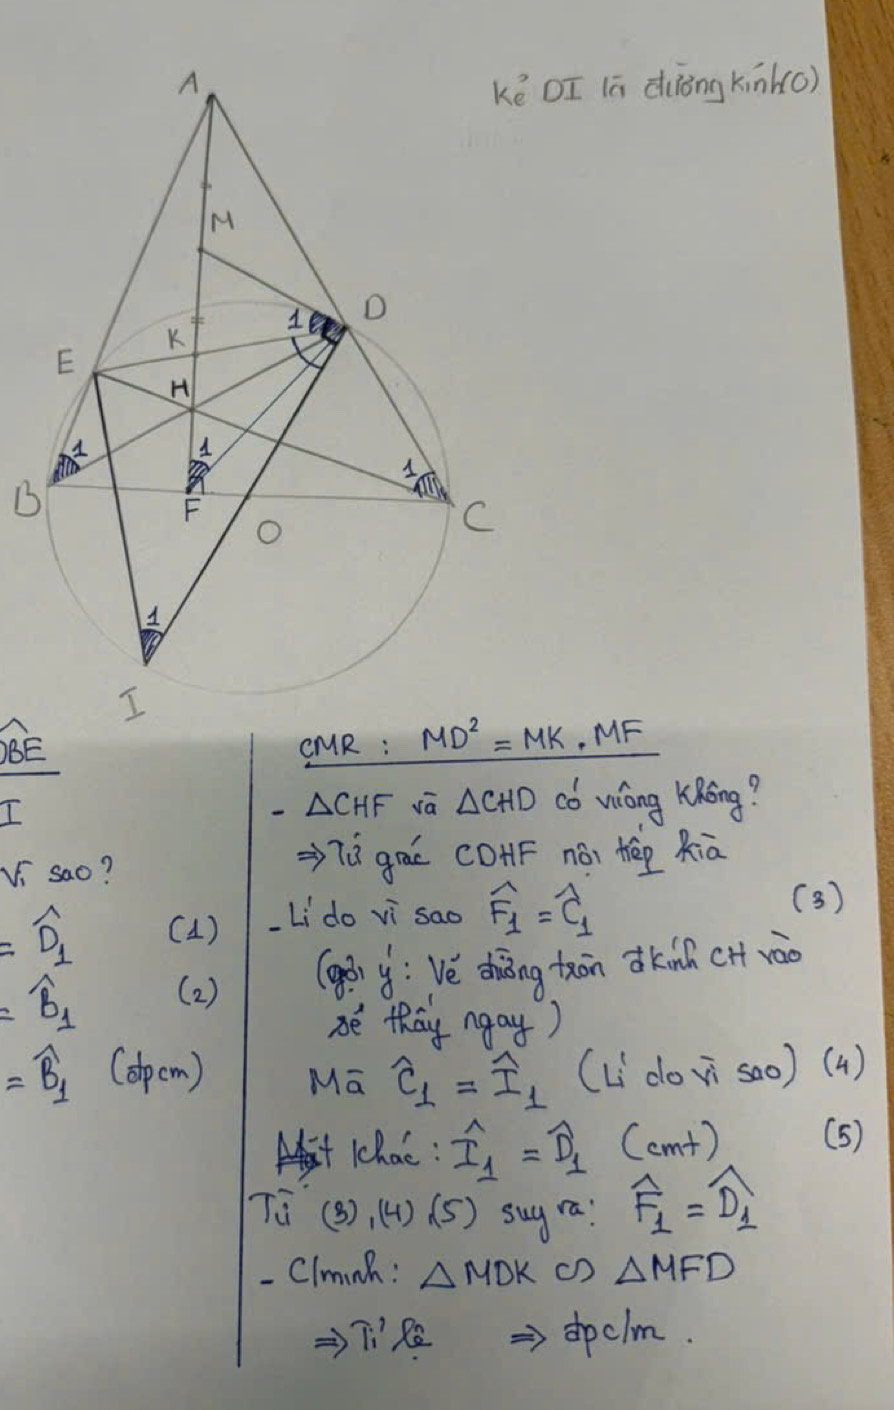 Kẻ DI là đường kính (O)
A
M
D
1
K
E
H
1
1
1
B
F
O
C
1
I
DBE
I
Vì sao?
= D̂₁ (1)
= B̂₁ (2)
= B̂₁ (đpcm)
CMR : MD² = MK . MF
- △CHF và △CHD có vuông không?
⇒ Tứ giác CDHF nội tiếp kìa
- Lí do vì sao F̂₁ = Ĉ₁ (3)
(gợi ý: Vẽ đường tròn đkính CH vào
sẽ thấy ngay)
Mà Ĉ₁ = Î₁ (Lí do vì sao) (4)
Mặt khác: Î₁ = D̂₁ (cmt) (5)
Từ (3), (4), (5) suy ra: F̂₁ = D̂₁
- C/minh: △MDK ∽ △MFD
⇒ Tỉ lệ ⇒ đpc/m .